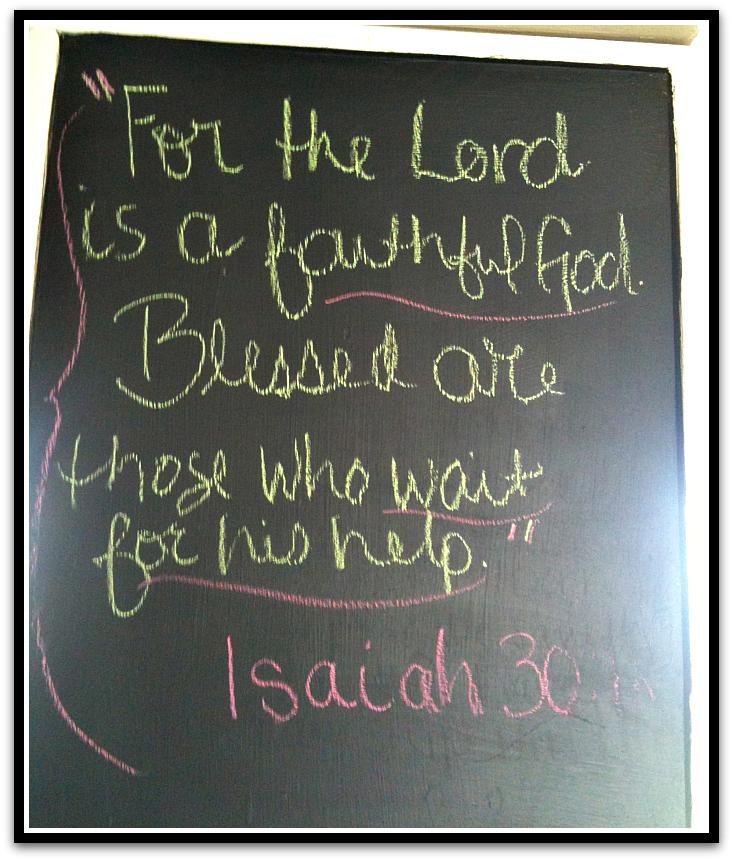 "For the Lord
is a faithful God.
Blessed are
those who wait
for his help."
Isaiah 30